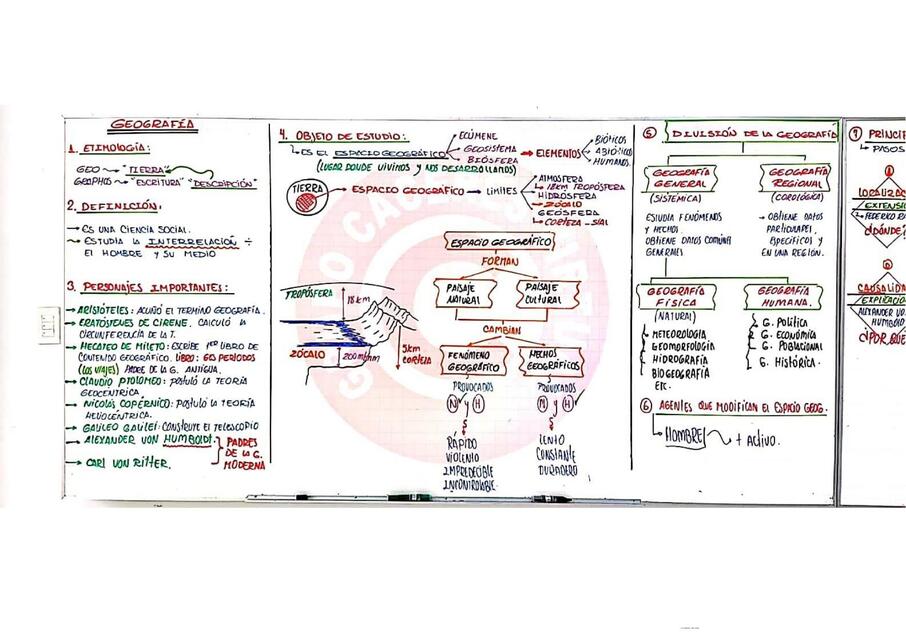 GEOGRAFÍA
1. ETIMOLOGÍA:
GEO "TIERRA"
GRAPHOS "ESCRITURA" "DESCRIPCIÓN"
2. DEFINICIÓN:
ES UNA CIENCIA SOCIAL.
ESTUDIA LA INTERRELACIÓN ÷
EL HOMBRE Y SU MEDIO
3. PERSONAJES IMPORTANTES:
ARISTÓTELES: ACUÑÓ EL TERMINO GEOGRAFÍA.
ERATÓSTENES DE CIRENE. CALCULÓ LA
CIRCUNFERENCIA DE LA T.
HECATEO DE MILETO: ESCRIBE 1ER LIBRO DE
CONTENIDO GEOGRÁFICO. LIBRO: GES PERIODOS
(LOS VIAJES) PADRE DE LA G. ANTIGUA.
CLAUDIO PTOLOMEO: POSTULÓ LA TEORÍA
GEOCENTRICA.
NICOLÁS COPÉRNICO: POSTULÓ LA TEORÍA
HELIOCÉNTRICA.
GALILEO GALILEI: CONSTRUYE EL TELESCOPIO
ALEXANDER VON HUMBOLDT.
CARL VON RITTER.
PADRES
DE LA G.
MODERNA
4. OBJETO DE ESTUDIO:
ES EL ESPACIO GEOGRÁFICO
(LUGAR DONDE VIVIMOS Y NOS DESARROLLAMOS)
ECÚMENE
GEOSISTEMA
BIÓSFERA
ELEMENTOS
BIÓTICOS
ABIÓTICOS
HUMANOS
TIERRA ESPACIO GEOGRÁFICO LIMITES
ATMOSFERA
18KM TROPÓSFERA
HIDRÓSFERA
ZÓCALO
GEÓSFERA
CORTEZA - SIAL
ESPACIO GEOGRÁFICO
FORMAN
PAISAJE NATURAL
PAISAJE CULTURAL
CAMBIAN
FENÓMENO GEOGRÁFICO
HECHOS GEOGRÁFICOS
PROVOCADOS
PROVOCADOS
N y H
N y H
RÁPIDO
VIOLENTO
IMPREDECIBLE
INCONTROLABLE.
LENTO
CONSTANTE
DURADERO
TROPÓSFERA
18 km
ZÓCALO
5km
CORTEZA
5 DIVISIÓN DE LA GEOGRAFÍA
GEOGRAFÍA GENERAL
(SISTÉMICA)
ESTUDIA FENÓMENOS
Y HECHOS
OBTIENE DATOS COMUNES
GENERALES
GEOGRAFÍA REGIONAL
(COROLÓGICA)
OBTIENE DATOS
ESPECÍFICOS Y
EN UNA REGIÓN.
GEOGRAFÍA FÍSICA
(NATURAL)
METEOROLOGÍA
GEOMORFOLOGÍA
HIDROGRAFÍA
BIOGEOGRAFÍA
ETC.
GEOGRAFÍA HUMANA.
G. Política
G. Económica
G. Poblacional
G. Histórica.
6 AGENTES QUE MODIFICAN EL ESPACIO GEOG.
HOMBRE + Activo.
PRINCIPI
PASOS
LOCALIZAC
EXTENSIÓ
FEDERICO RA
¿DÓNDE?
CAUSALIDA
EXPLICACIÓ
ALEXANDER VO
HUMBOLD
¿POR QUÉ